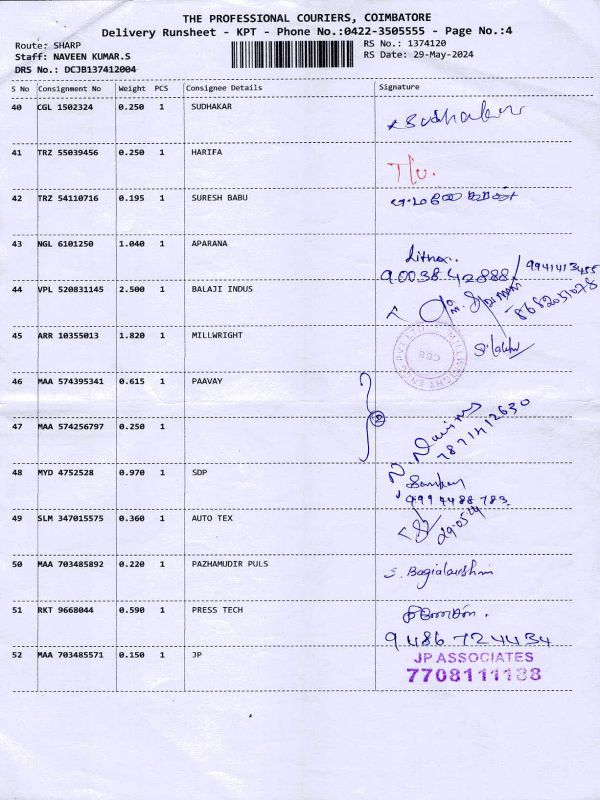 THE PROFESSIONAL COURIERS, COIMBATORE
Delivery Runsheet - KPT - Phone No.:0422-3505555 - Page No.:4
Route: SHARP RS No.: 1374120
Staff: NAVEEN KUMAR.S RS Date: 29-May-2024
DRS No.: DCJB137412004
S No Consignment No Weight PCS Consignee Details Signature
40 CGL 1502324 0.250 1 SUDHAKAR Sudhakar
41 TRZ 55039456 0.250 1 HARIFA
42 TRZ 54110716 0.195 1 SURESH BABU
43 NGL 6101250 1.040 1 APARANA
90038 42888 / 9941413455
44 VPL 520831145 2.500 1 BALAJI INDUS 8682051078
45 ARR 10355013 1.820 1 MILLWRIGHT
46 MAA 574395341 0.615 1 PAAVAY
47 MAA 574256797 0.250 1
48 MYD 4752528 0.970 1 SDP
49 SLM 347015575 0.360 1 AUTO TEX
50 MAA 703485892 0.220 1 PAZHAMUDIR PULS
51 RKT 9668044 0.590 1 PRESS TECH
9486724434
52 MAA 703485571 0.150 1 JP JP ASSOCIATES